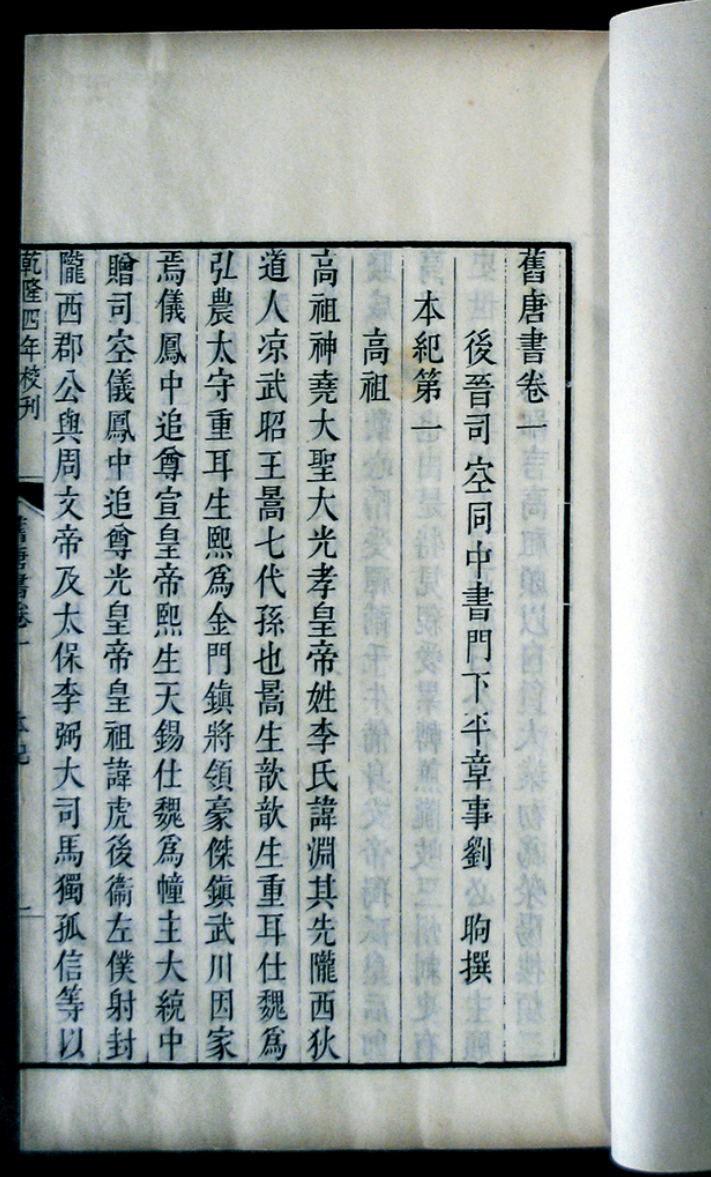 舊唐書卷一
後晉司空同中書門下平章事劉 昫撰
本紀第一
高祖
高祖神堯大聖大光孝皇帝姓李氏諱淵其先隴西狄
道人涼武昭王暠七代孫也暠生歆歆生重耳仕魏爲
弘農太守重耳生熙爲金門鎮將領豪傑鎮武川因家
焉儀鳳中追尊宣皇帝熙生天錫仕魏爲幢主大統中
贈司空儀鳳中追尊光皇帝皇祖諱虎後衞左僕射封
隴西郡公與周文帝及太保李弼大司馬獨孤信等以
乾隆四年校刊
舊唐書卷一 本紀 一